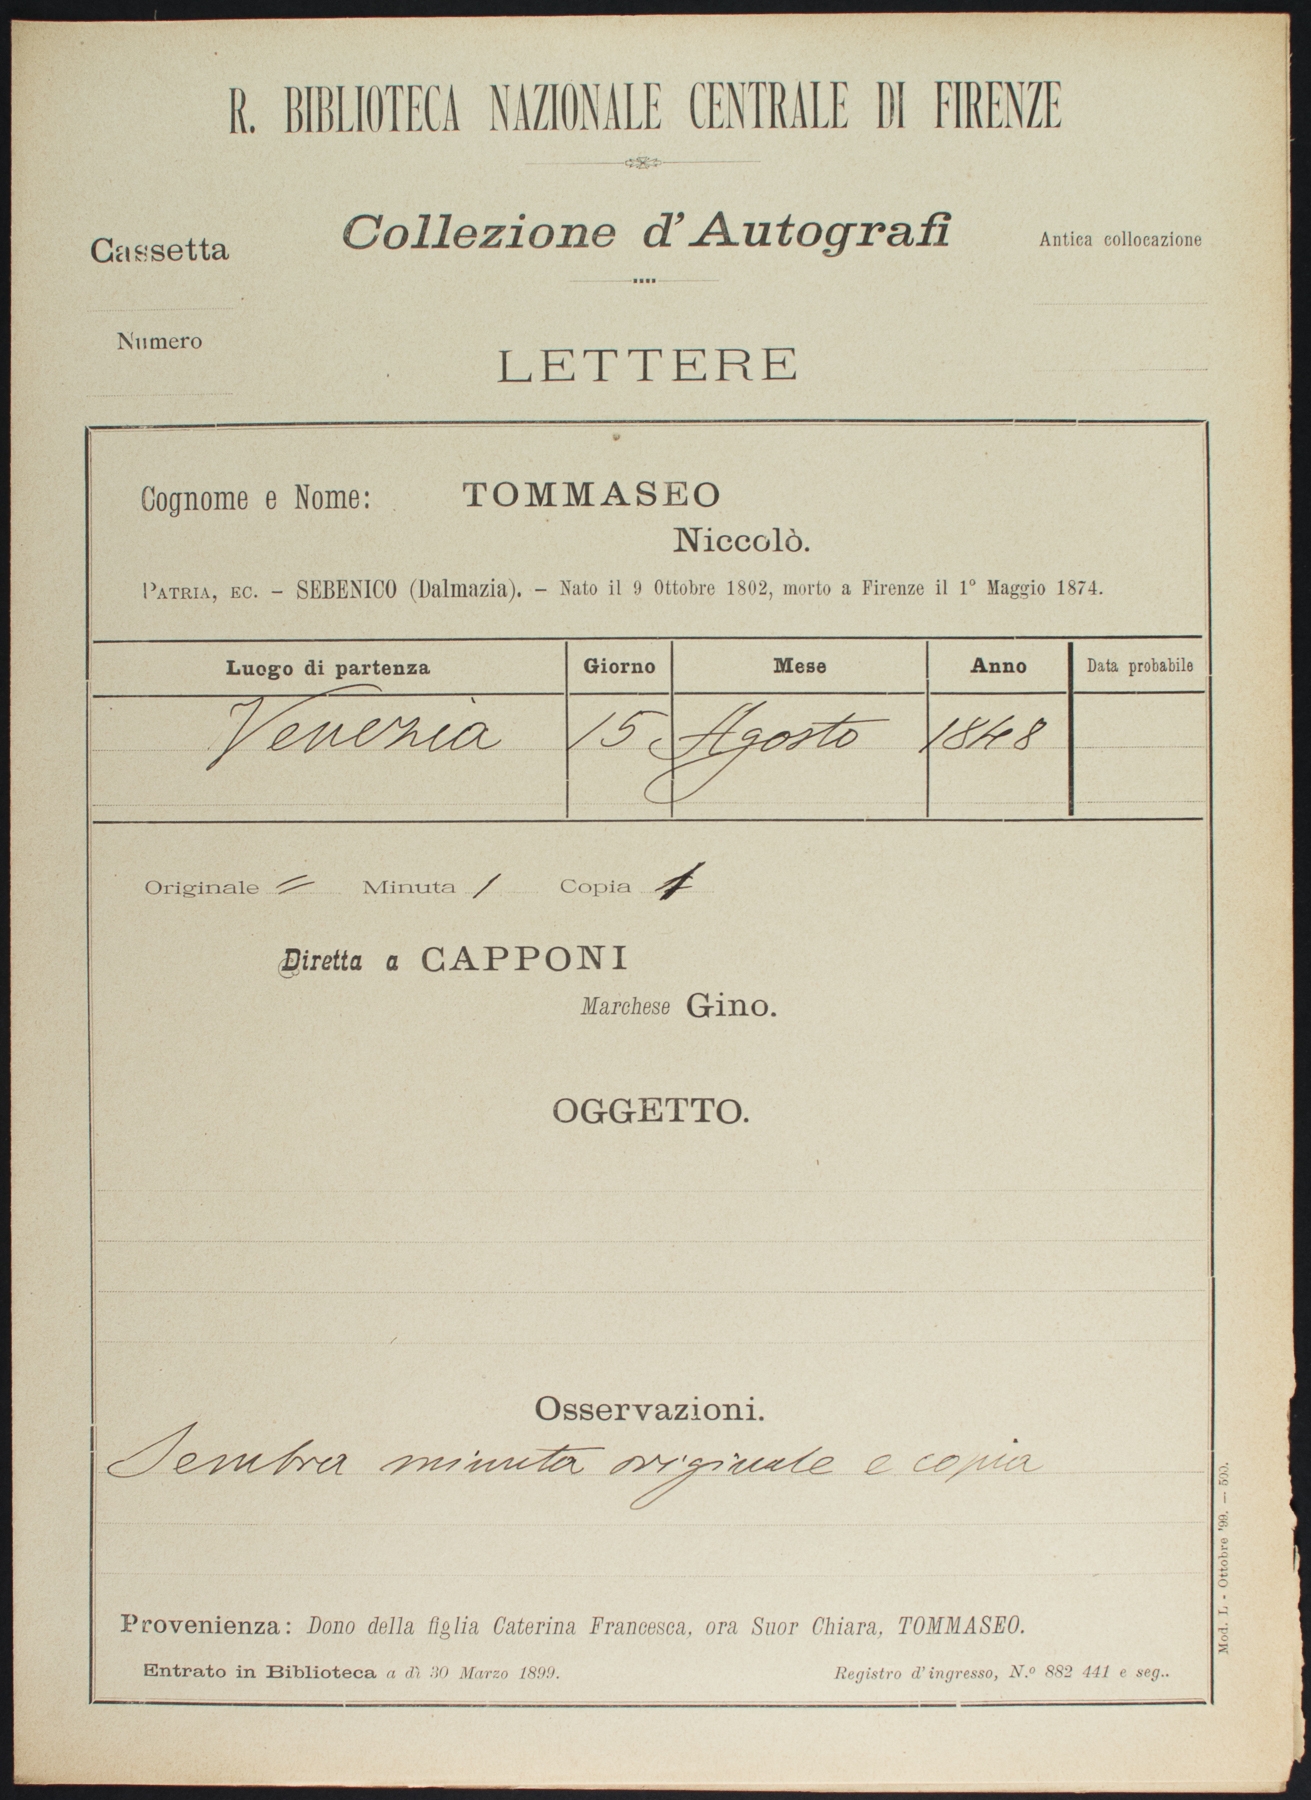 R. BIBLIOTECA NAZIONALE CENTRALE DI FIRENZE
Cassetta
Collezione d'Autografi
Antica collocazione
Numero
LETTERE
Cognome e Nome: TOMMASEO
Niccolò.
PATRIA, EC. – SEBENICO (Dalmazia). – Nato il 9 Ottobre 1802, morto a Firenze il 1° Maggio 1874.
Luogo di partenza Giorno Mese Anno Data probabile
Venezia 15 Agosto 1848
Originale = Minuta 1 Copia 1
Diretta a CAPPONI
Marchese Gino.
OGGETTO.
Osservazioni.
Sembra minuta originale e copia
Provenienza: Dono della figlia Caterina Francesca, ora Suor Chiara, TOMMASEO.
Entrato in Biblioteca a dì 30 Marzo 1899. Registro d'ingresso, N.° 882 441 e seg..
Mod. L - Ottobre '99. — 500.